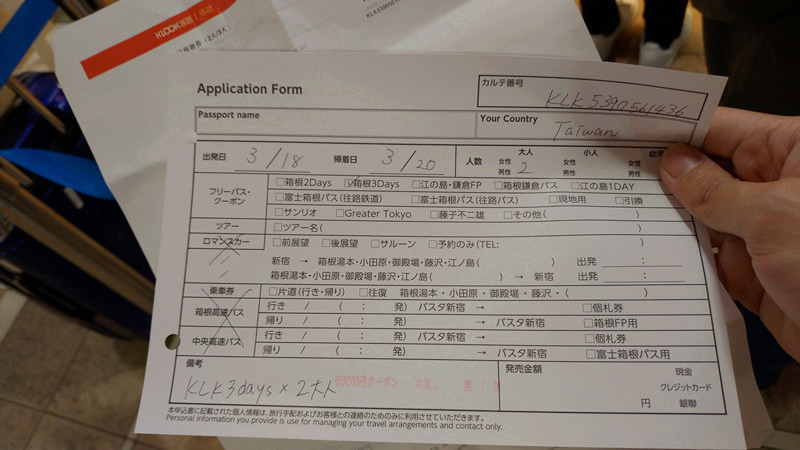 KLOOK客路
KLK5390
Application Form
カルテ番号
KLK 5390561436
Passport name
Your Country
Taiwan
出発日 3/18 帰着日 3/20 人数 大人 小人 幼児
女性 女性 女性
男性 2 男性 男性
フリーパス・クーポン
□箱根2Days ☑箱根3Days □江の島・鎌倉FP □箱根鎌倉パス □江の島1DAY
□富士箱根パス(往路鉄道) □富士箱根パス(往路パス) □現地用 □引換
□サンリオ □Greater Tokyo □藤子不二雄 □その他( )
ツアー □ツアー名( )
ロマンスカー □前展望 □後展望 □サルーン □予約のみ(TEL: )
新宿 → 箱根湯本・小田原・御殿場・藤沢・江ノ島( ) 出発 :
箱根湯本・小田原・御殿場・藤沢・江ノ島( ) → 新宿 出発 :
乗車券 □片道(行き・帰り) □往復 箱根湯本・小田原・御殿場・藤沢・( )
箱根高速バス 行き / ( : 発) バスタ新宿 → □個札券
帰り / ( : 発) → バスタ新宿 □箱根FP用
中央高速バス 行き / ( : 発) バスタ新宿 → □個札券
帰り / ( : 発) → バスタ新宿 □富士箱根パス用
備考
KLK 3days × 2大人
500円クーポン お渡し
発売金額 現金
クレジットカード
円 銀聯
本申込書に記載された個人情報は、旅行手配およびお客様との連絡のためのみに利用させていただきます。
Personal information you provide is use for managing your travel arrangements and contact only.